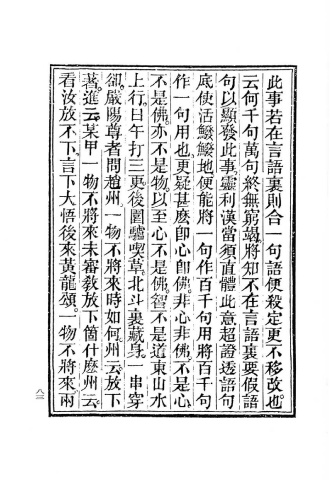 此事若在言語裏則合一句語便殺定更不移改也
云何千句萬句終無窮竭將知不在言語裏要假語
句以顯發此事靈利漢當須直體此意超證透語句
底使活鱍鱍地便能將一句作百千句用將百千句
作一句用也更疑甚麽卽心卽佛非心非佛不是心
不是佛亦不是物以至心不是佛智不是道東山水
上行日午打三更後園驢喫草北斗裏藏身一串穿
卻嚴陽尊者問趙州一物不將來時如何州云放下
著進云某甲一物不將來未審敎放下箇什麽州云
看汝放不下言下大悟後來黃龍頌一物不將來兩
八三